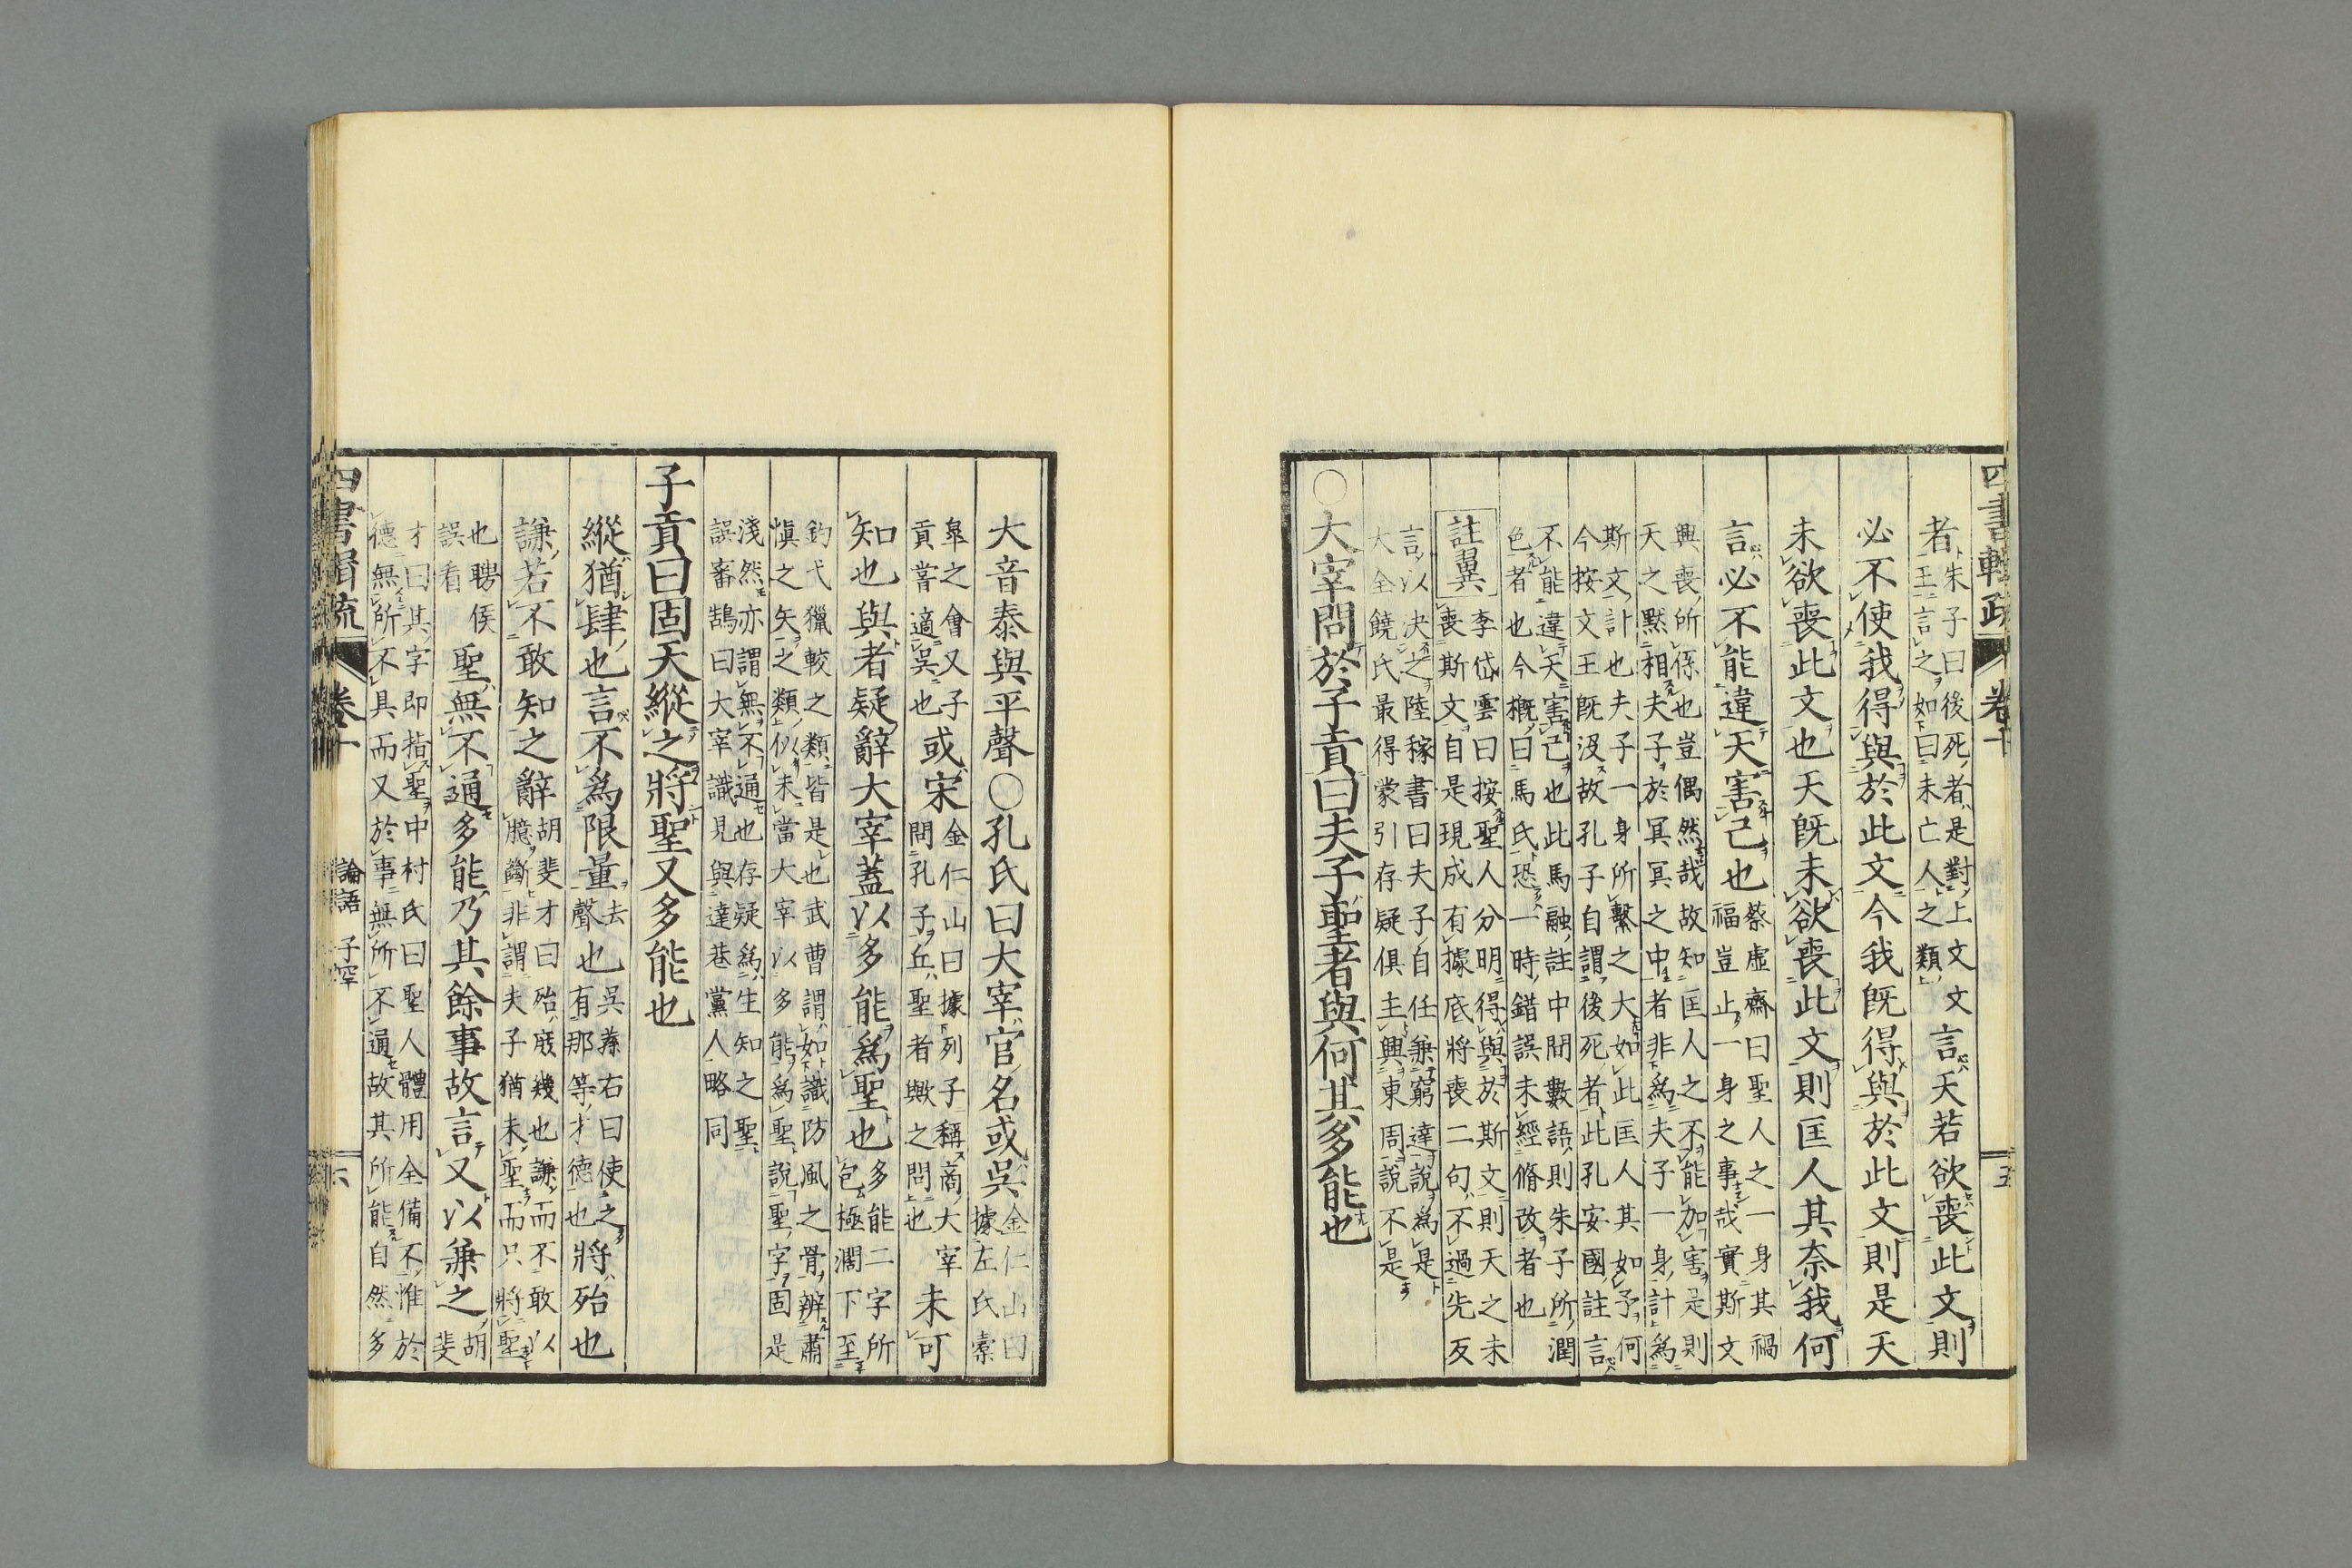 四書輯疏 卷十 五
者朱子曰後死者是對上文文
王言之如曰未亡人之類言天若欲喪此文則
必不使我得與於此文今我既得與於此文則是天
未欲喪此文也天既未欲喪此文則匡人其奈我何
言必不能違天害己也蔡虛齋曰聖人之一身其禍
福豈止一身之事哉實斯文
興喪所係也豈偶然哉故知匡人之不能加害是則
天之默相夫子於冥冥之中者非為夫子一身計為
斯文計也夫子一身所繫之大如此匡人其如予何
今按文王既沒故孔子自謂後死者此孔安國註言
不能違天害己也此馬融註中間數語則朱子所潤
色者也今概曰馬氏恐一時錯誤未經脩改者也
註翼李岱雲曰按聖人分明得與於斯文則天之未
喪斯文自是現成有據底將喪二句不過先反
言以決之陸稼書曰夫子自任兼窮達說為是
大全饒氏最得蒙引存疑俱主興東周說不是
○大宰問於子貢曰夫子聖者與何其多能也
大音泰與平聲○孔氏曰大宰官名或吳金仁山曰
據左氏槖
皐之會又子
貢嘗適吳也或宋金仁山曰據列子稱商大宰
問孔子丘聖者歟之問也未可
知也與者疑辭大宰蓋以多能為聖也多能二字所
包極濶下至
釣弋獵較之類皆是也武曹謂如識防風之骨辨肅
愼之矢之類似未當大宰以多能為聖說聖字固是
淺然亦謂無不通也存疑為生知之聖
誤審鵠曰大宰識見與達巷黨人略同
子貢曰固天縱之將聖又多能也
縱猶肆也言不為限量去
聲也吳蓀右曰使之
有那等才德也將殆也
謙若不敢知之辭胡斐才曰殆庻幾也謙而不敢以
臆斷非謂夫子猶未聖而只將聖
也聘侯
誤看聖無不通多能乃其餘事故言又以兼之胡
斐
才曰其字即指聖中村氏曰聖人體用全備不惟於
德無所不具而又於事無所不通故其所能自然多
四書輯疏 卷十 論語 子罕 六